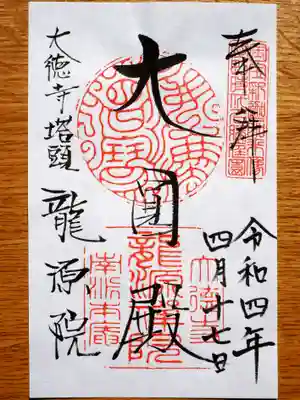 奉拝
令和四年
四月十七日
大圓殿
大徳寺塔頭
龍源院